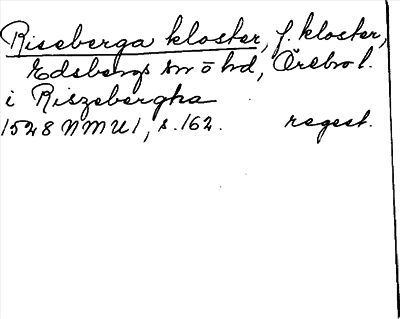 Riseberga kloster, f. kloster,
Edsbergs sn o hd, Örebro l.
i Riszebergha
1528 NMU1, s. 162. regest.